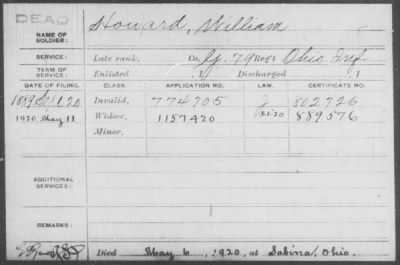 DEAD
Howard, William
NAME OF SOLDIER:
SERVICE: Late rank, Co. G. 79 Reg't Ohio Inf
TERM OF SERVICE: Enlisted , 1 Discharged , 1
DATE OF FILING. CLASS. APPLICATION NO. LAW. CERTIFICATE NO.
1889 Sept 20 Invalid, 774705 802726
1920 May 11 Widow, 1157420 889576
Minor,
ADDITIONAL SERVICES:
REMARKS:
Died May 6, 1920, at Sabina, Ohio.